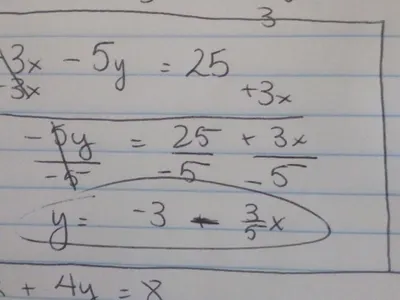 3
-3x - 5y = 25
+3x +3x
-5y = 25 + 3x
-5 -5 -5
y = -3 - 3/5 x
x + 4y = 8